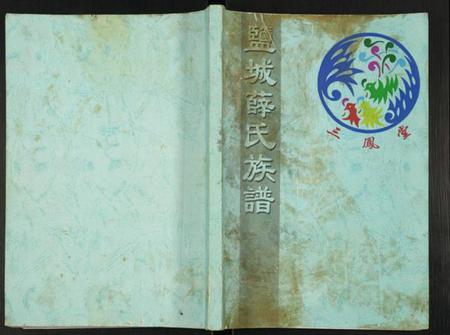 鹽城薛氏族譜
三鳳堂